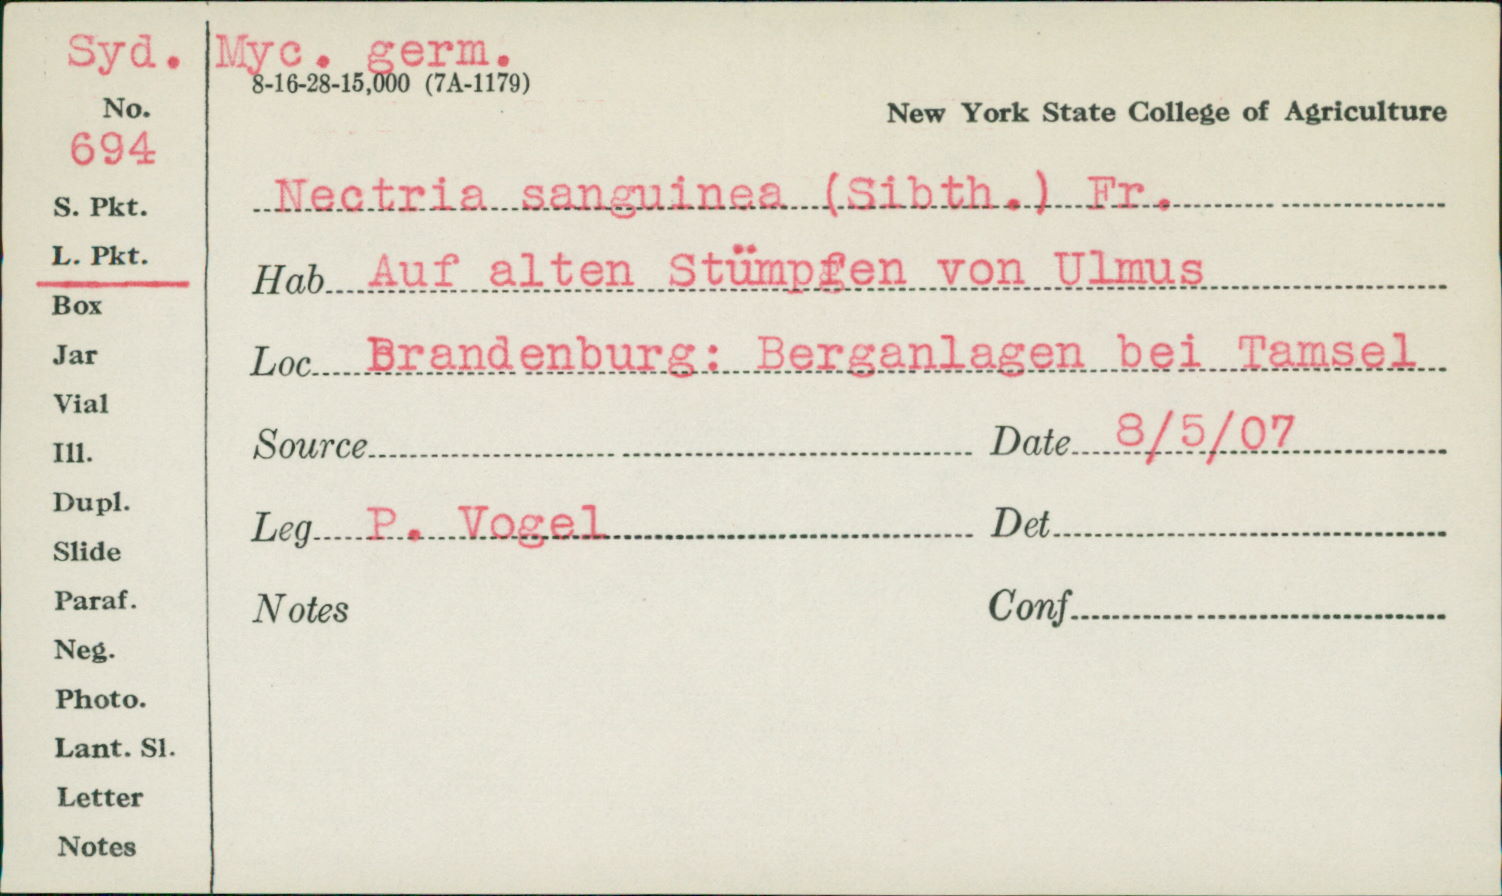 Syd. Myc. germ.
8-16-28-15,000 (7A-1179)
No.
New York State College of Agriculture
694
Nectria sanguinea (Sibth.) Fr.
S. Pkt.
L. Pkt.
Hab. Auf alten Stümpfen von Ulmus
Box
Loc. Brandenburg: Berganlagen bei Tamsel
Jar
Vial
Source Date 8/5/07
Ill.
Dupl.
Leg. P. Vogel Det.
Slide
Paraf.
Notes Conf.
Neg.
Photo.
Lant. Sl.
Letter
Notes